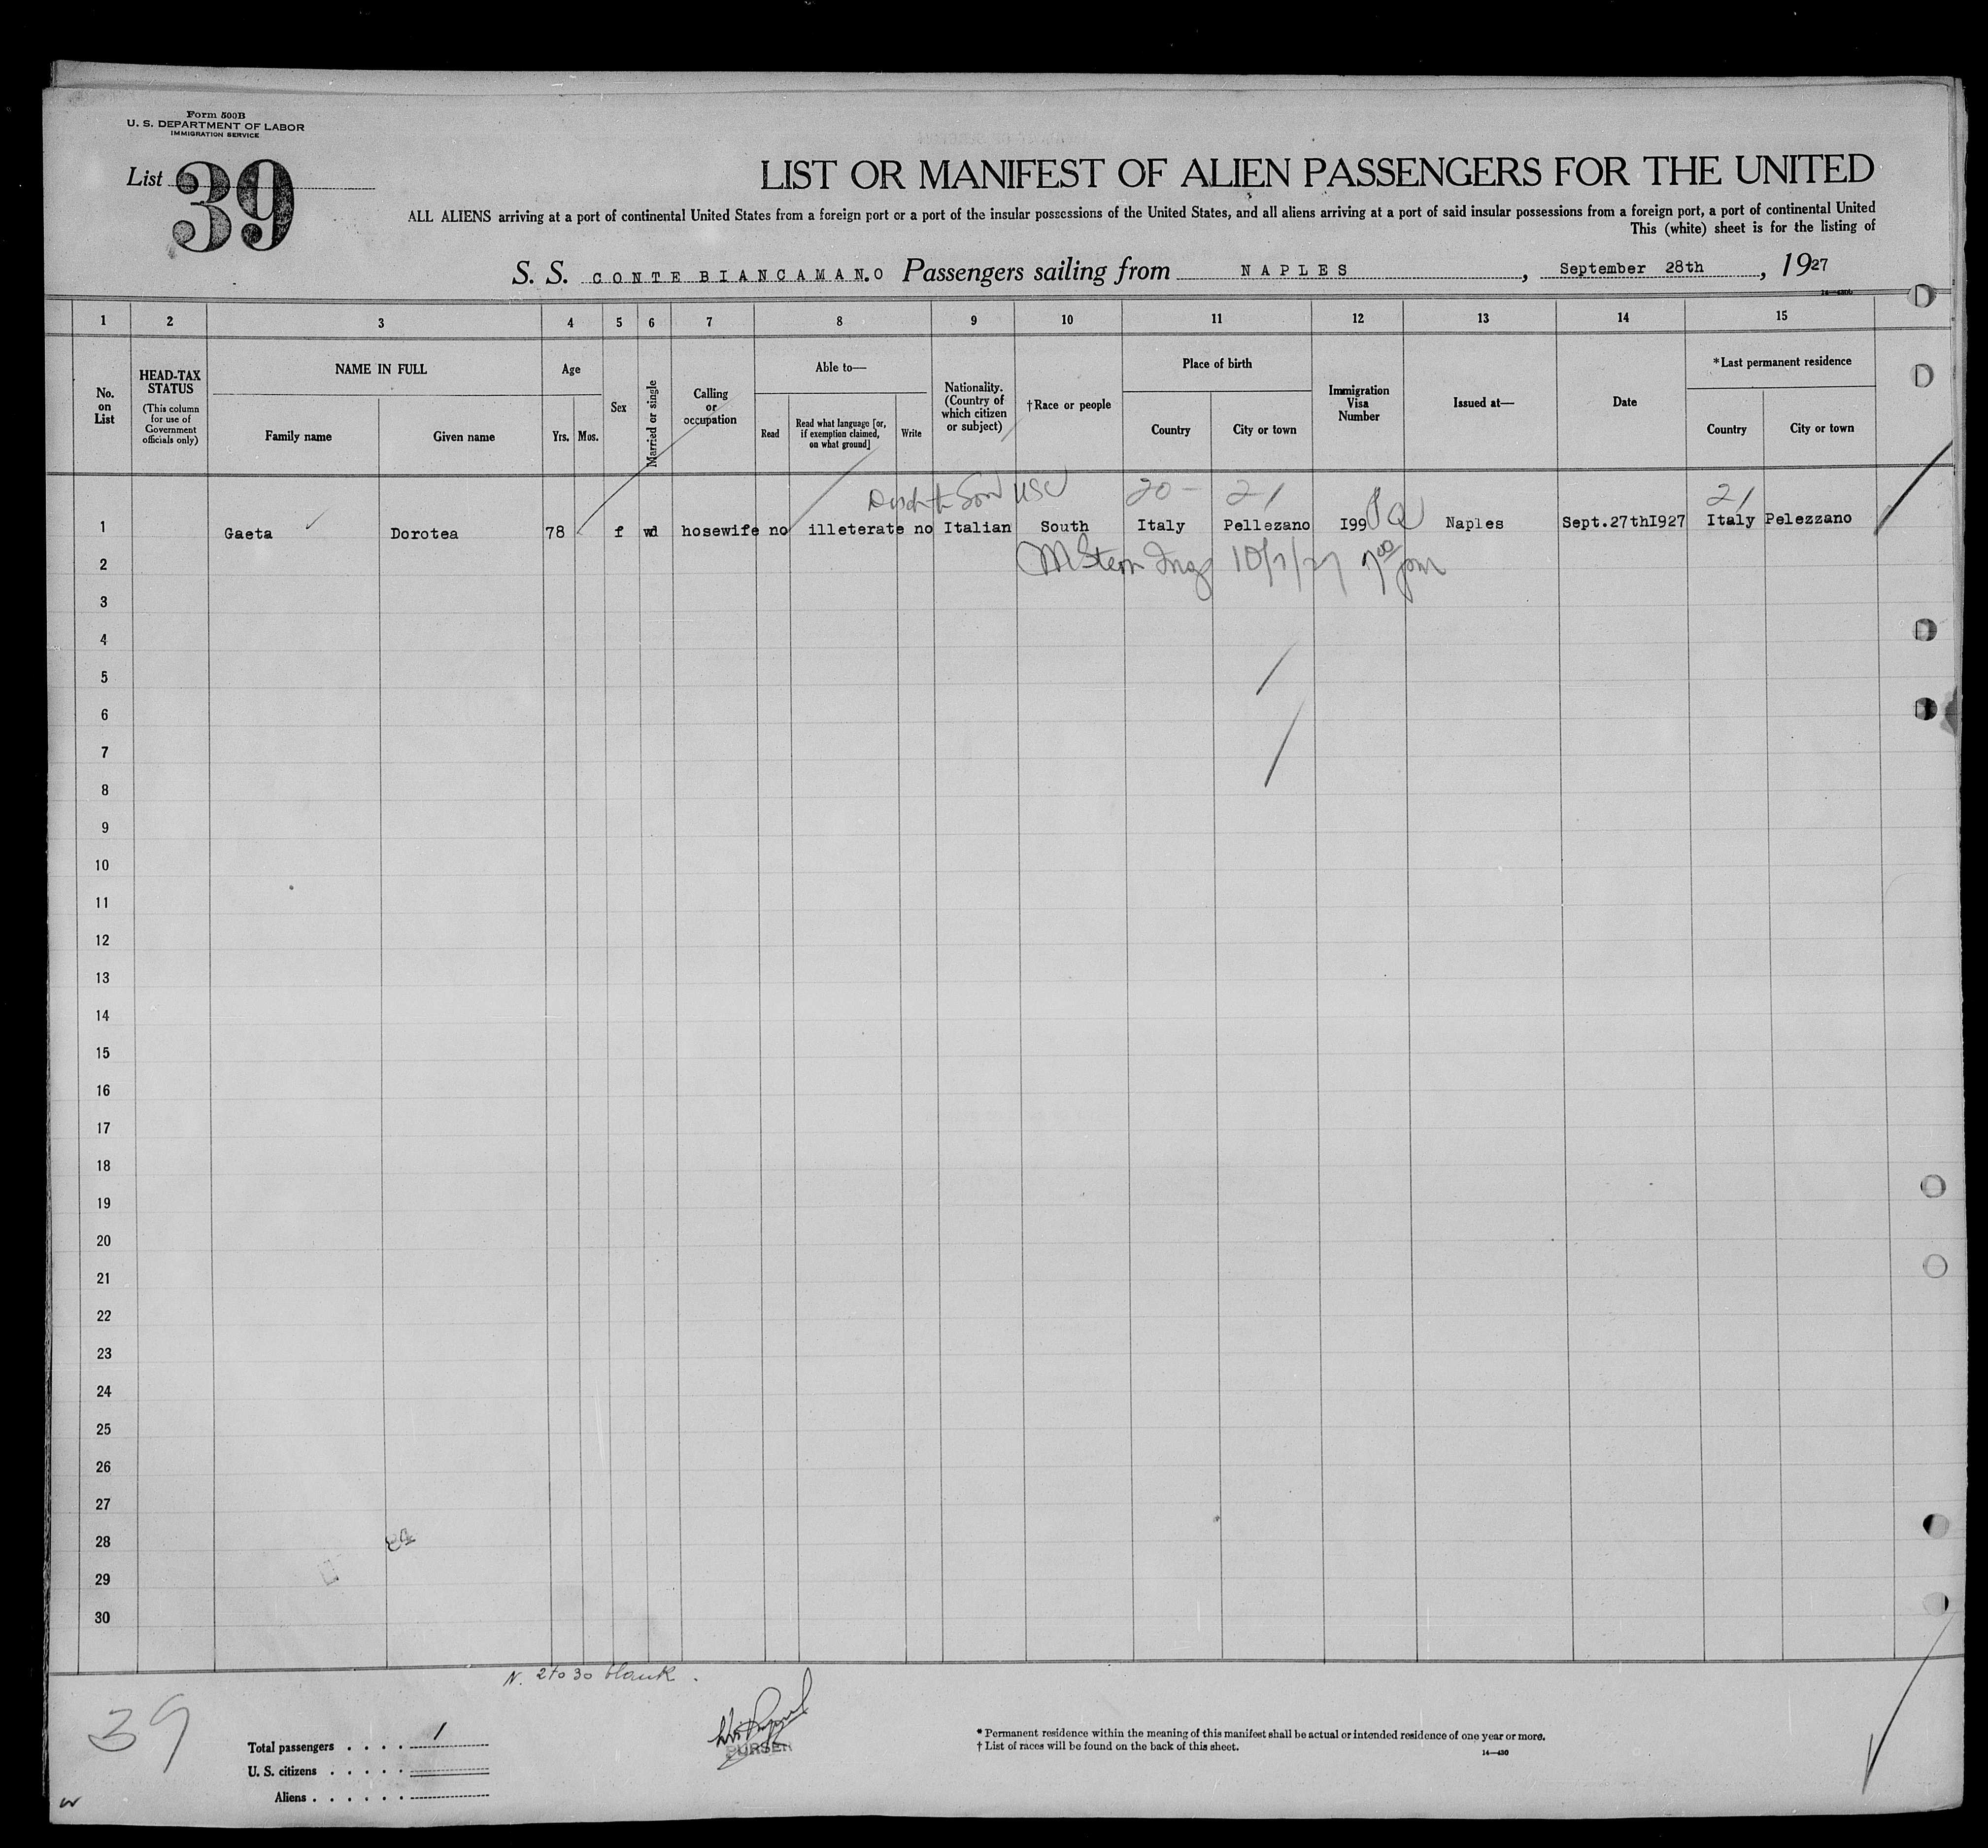 Form 500B
U. S. DEPARTMENT OF LABOR
IMMIGRATION SERVICE
List 39
LIST OR MANIFEST OF ALIEN PASSENGERS FOR THE UNITED
ALL ALIENS arriving at a port of continental United States from a foreign port or a port of the insular possessions of the United States, and all aliens arriving at a port of said insular possessions from a foreign port, a port of continental United
This (white) sheet is for the listing of
S. S. CONTE BIANCAMANO Passengers sailing from NAPLES, September 28th, 1927
1 2 3 4 5 6 7 8 9 10 11 12 13 14 15
No. on List
HEAD-TAX STATUS
(This column for use of Government officials only)
NAME IN FULL
Family name
Given name
Age
Yrs.
Mos.
Sex
Married or single
Calling or occupation
Able to—
Read
Read what language [or, if exemption claimed, on what ground]
Write
Nationality. (Country of which citizen or subject)
†Race or people
Place of birth
Country
City or town
Immigration Visa Number
Issued at—
Date
*Last permanent residence
Country
City or town
Son USC 20- 21 21
1 Gaeta Dorotea 78 f wd hosewife no illeterate no Italian South Italy Pellezano I99 Naples Sept.27thI927 Italy Pelezzano
2 M Stern Insp 10/7/27 7 00 pm
3
4
5
6
7
8
9
10
11
12
13
14
15
16
17
18
19
20
21
22
23
24
25
26
27
28
29
30
N. 2 to 30 blank.
39
Total passengers . . . . 1
U. S. citizens . . . . .
Aliens . . . . . .
PURSER
* Permanent residence within the meaning of this manifest shall be actual or intended residence of one year or more.
† List of races will be found on the back of this sheet.
14—430